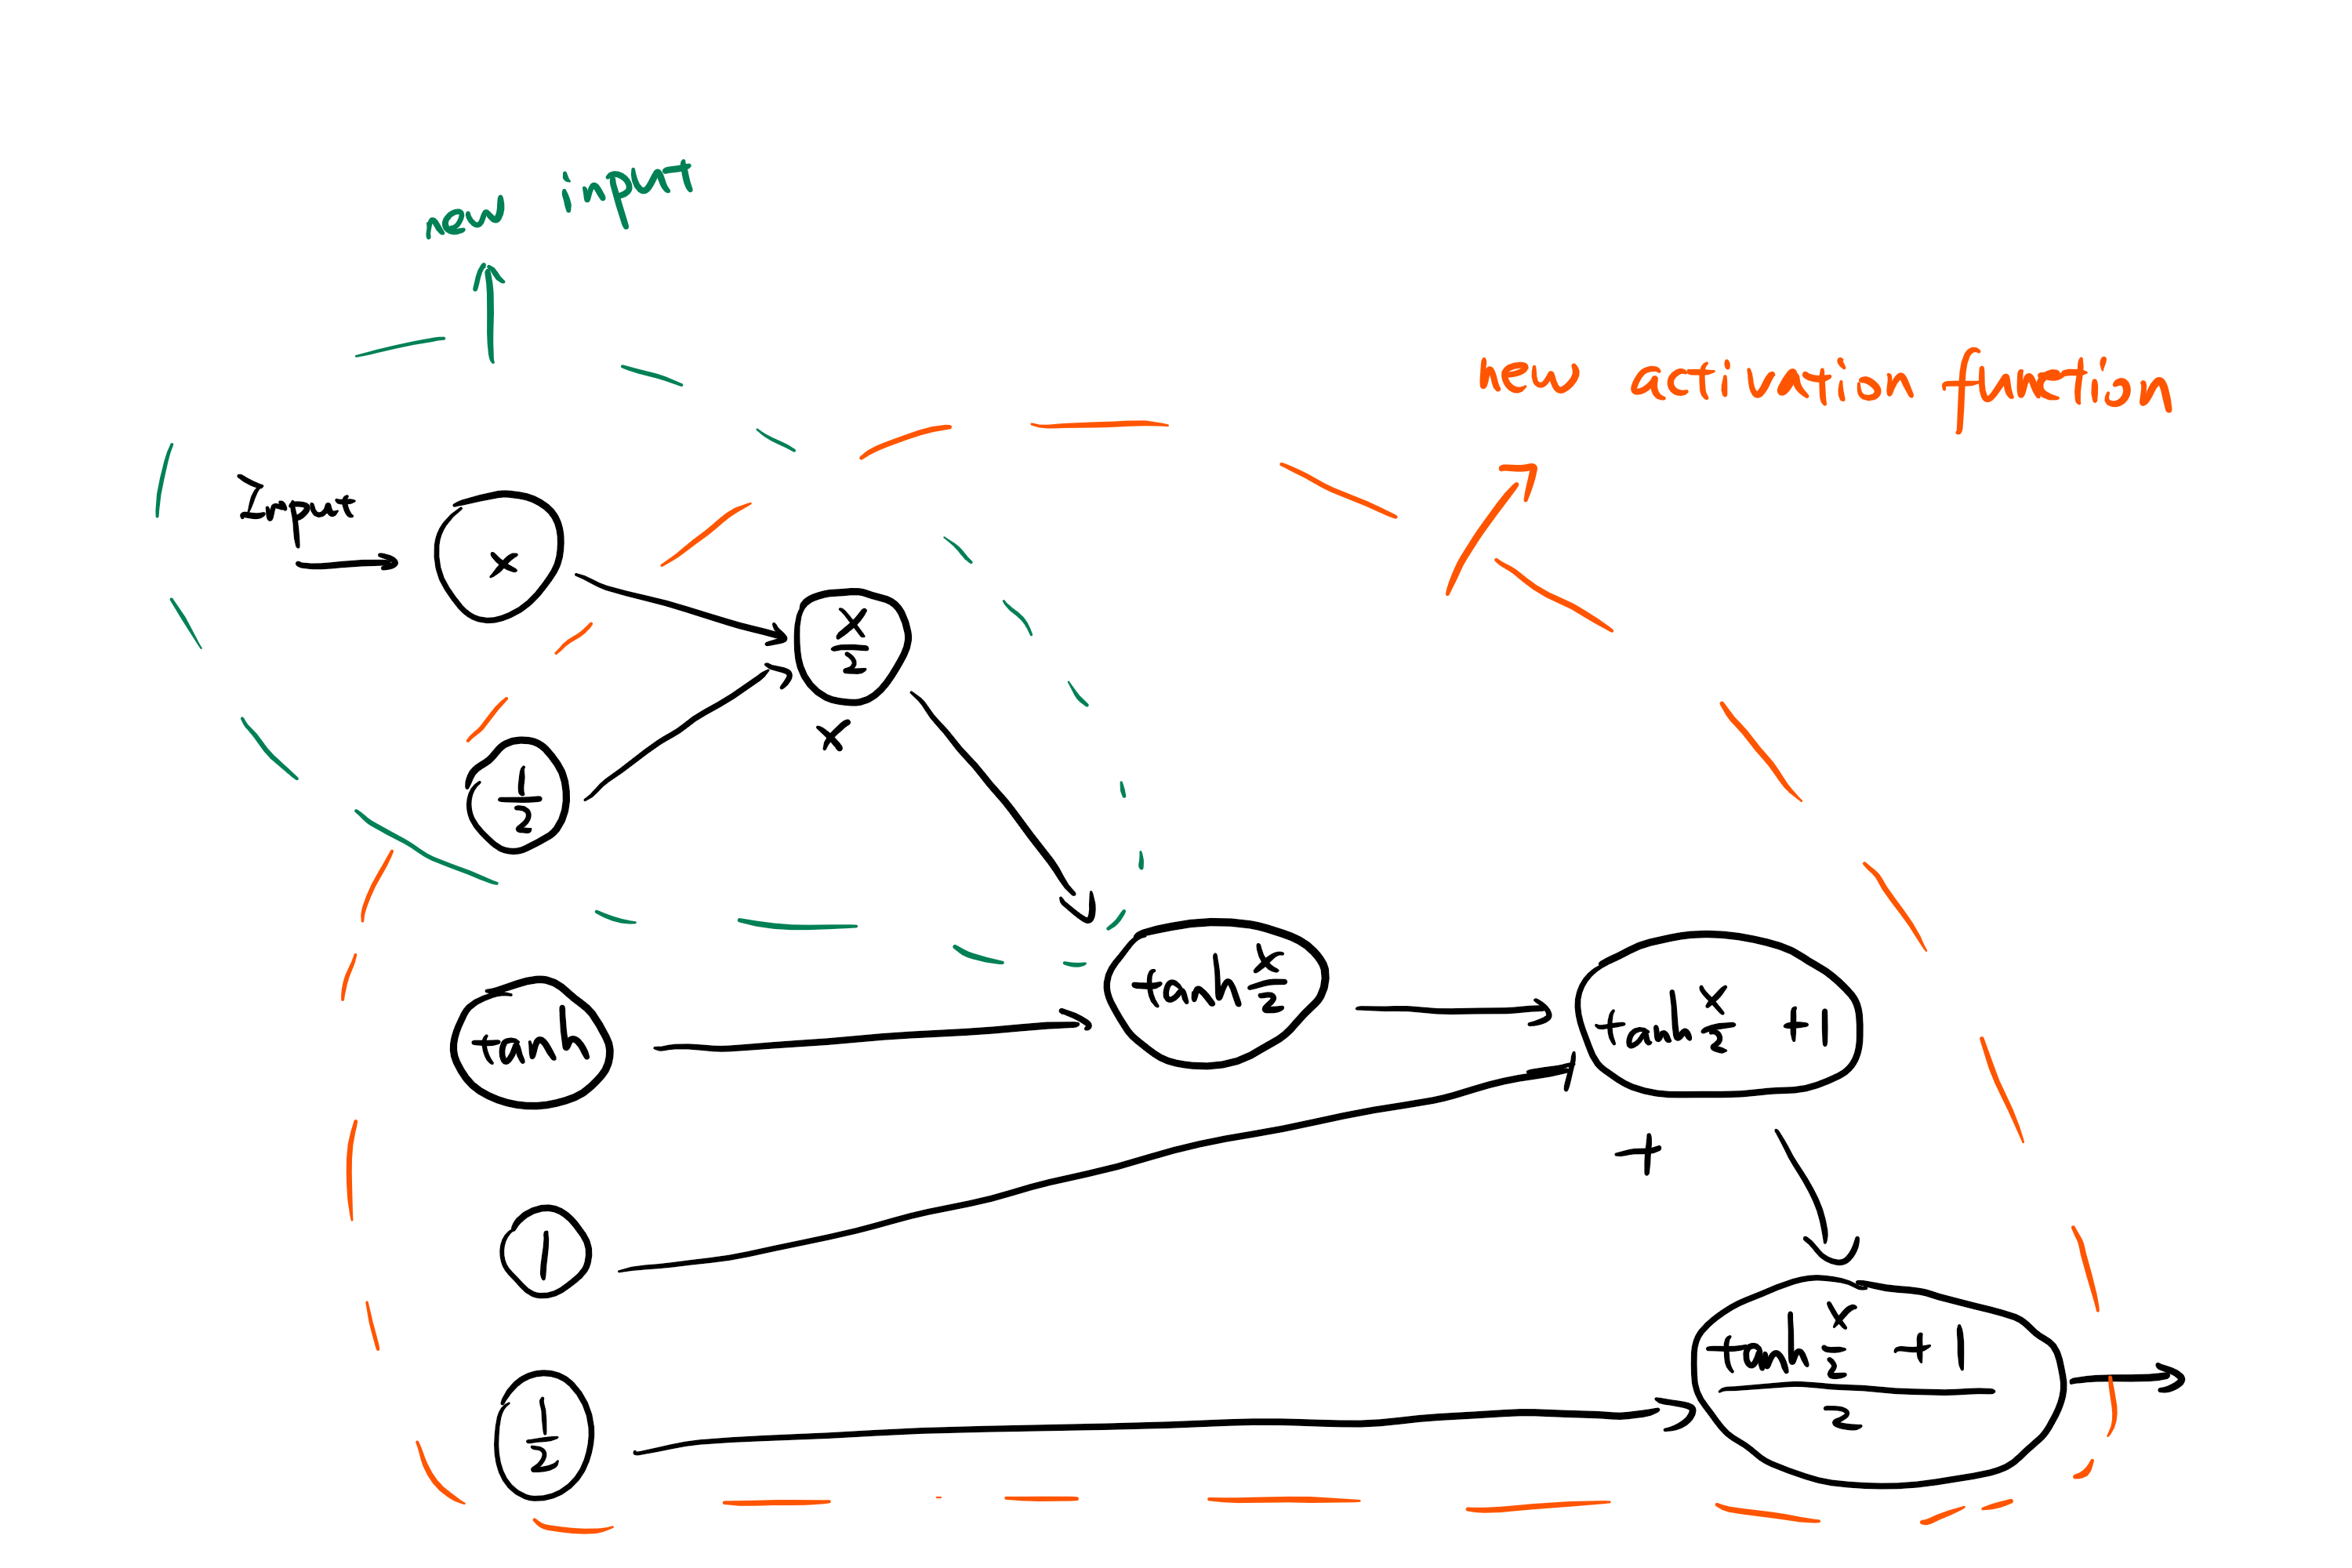 new input
new activation function
Input
x
x/2
x
1/2
tanh
tanh x/2
tanh x/2 +1
+
1
tanh x/2 +1 / 2
1/2